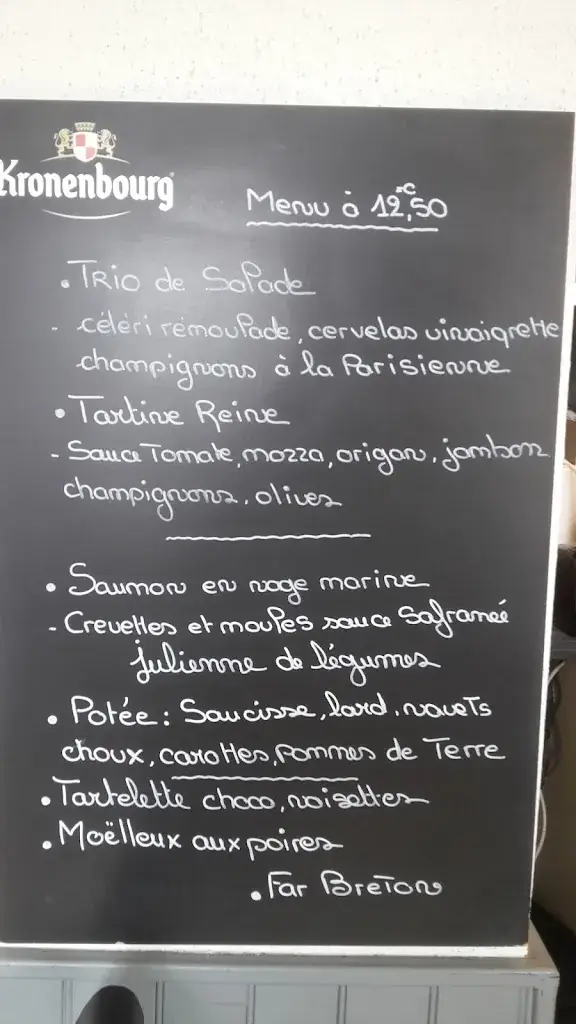 Kronenbourg
Menu à 12,50 €
• Trio de Salade
- céléri rémoulade, cervelas vinaigrette
champignons à la Parisienne
• Tartine Reine
- Sauce Tomate, mozza, origan, jambon
champignons, olives
• Saumon en nage marine
- Crevettes et moules sauce Safranée
julienne de légumes
• Potée : Saucisse, lard, navets
choux, carottes, pommes de Terre
• Tartelette choco, noisettes
• Moëlleux aux poires
• Far Breton